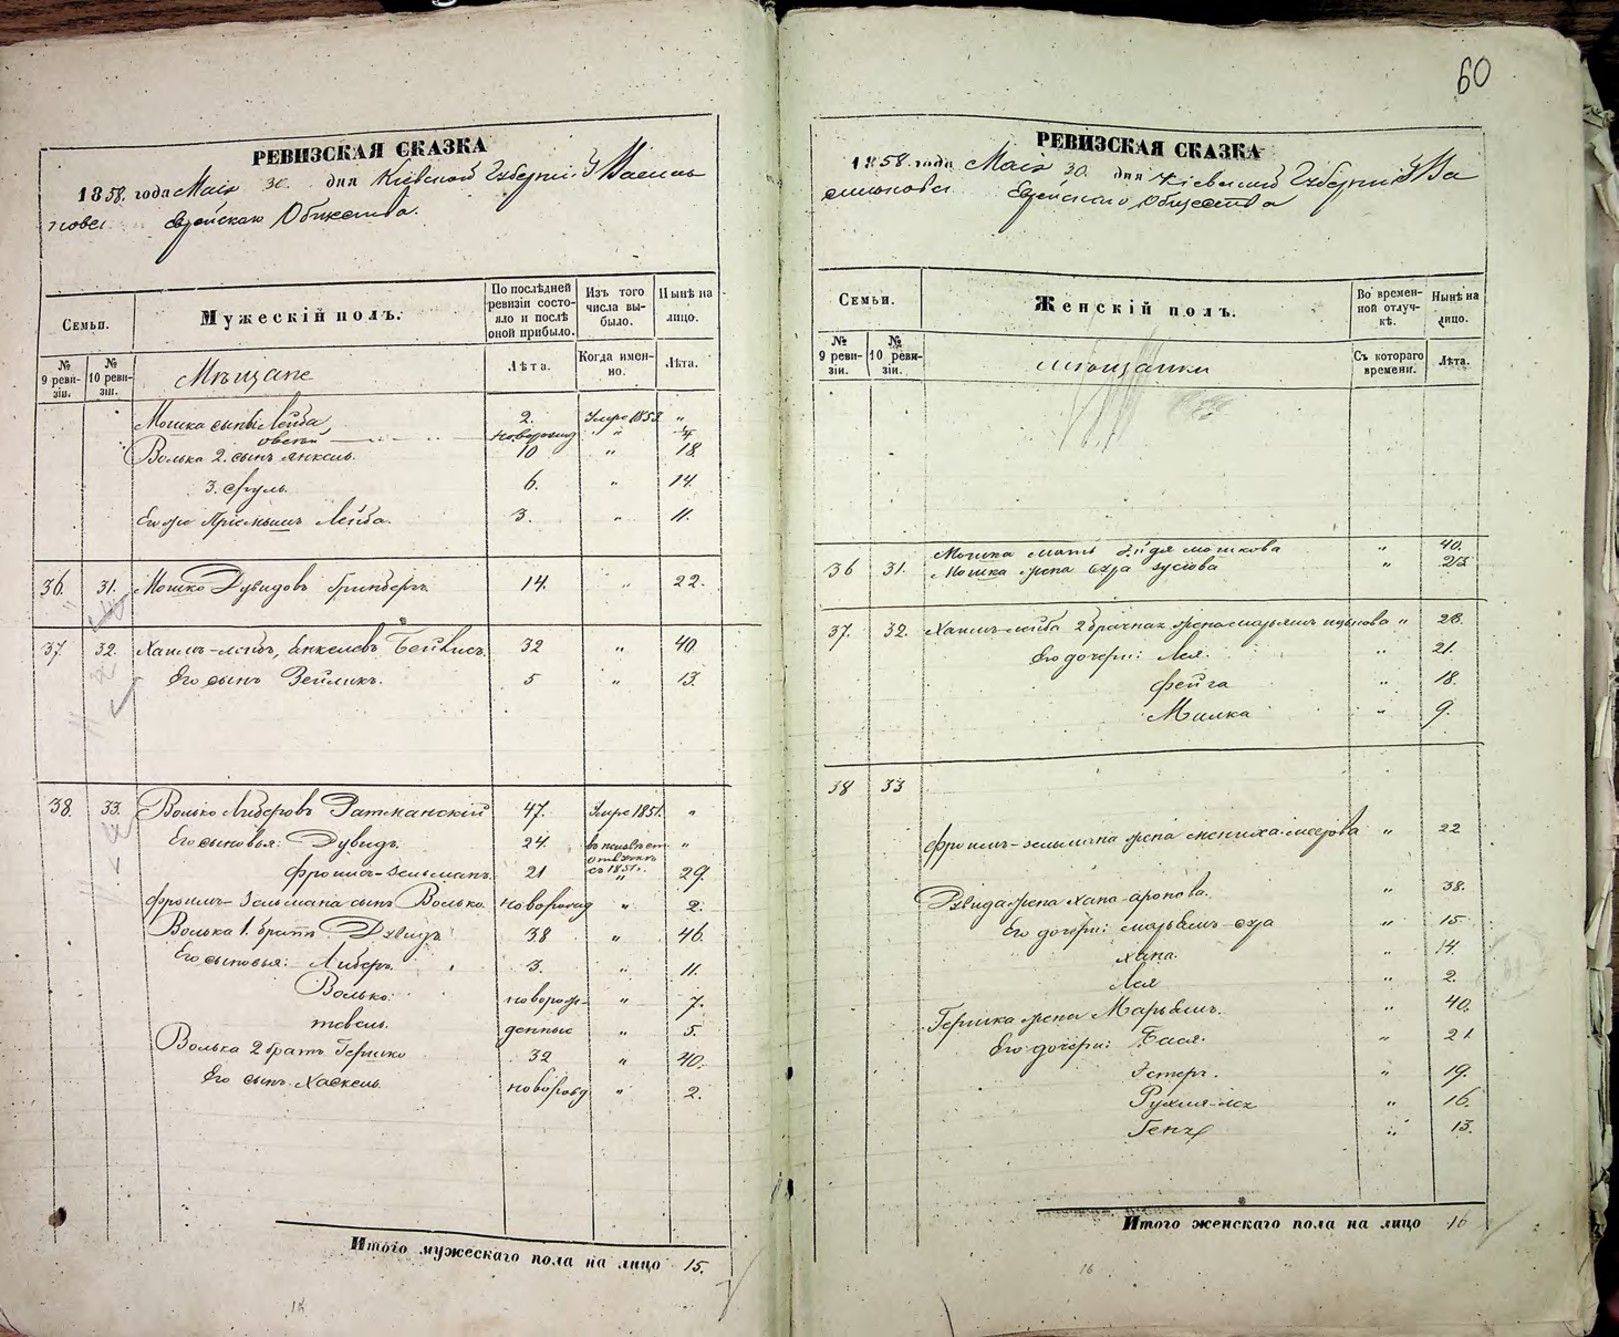 60
РЕВИЗСКАЯ СКАЗКА
1858. года Маія 30. дня Кіевской Губерніи У Василь
кова Еврейскаго Общества.
Семьи.
Мужескій полъ.
По послѣдней ревизіи состояло и послѣ оной прибыло.
Изъ того числа выбыло.
Нынѣ на лицо.
№ 9 ревизіи.
№ 10 ревизіи.
Мѣщане
Лѣта.
Когда именно.
Лѣта.
Мошка сынъ Лейба 2. Умре 1853 "
новорожд "
Волька 2. сынъ Янкель. 10 " 18.
3. Сруль. 6. " 14.
Его же Пріемышъ Лейба. 3. " 11.
36. 31. Мошко Дувидовъ Гринбергъ 14. " 22.
37. 32. Хаимъ-Лейбъ, Янкелевъ Бейлисъ. 32 " 40.
Его сынъ Зейликъ. 5 " 13.
38. 33. Волько Либеровъ Ратманскій 47. Умре 1851. "
Его сыновья: Дувидъ. 24. въ неизвѣст отлучкѣ съ 1851. "
Фроимъ-Зельманъ. 21 " 29.
Фроимъ-Зельмана сынъ Волько. новорожд " 2.
Волька 1. братъ Дувидъ 38 " 46.
Его сыновья: Либеръ. 3. " 11.
Волько. новорож- " 7.
денные " 5.
Волька 2 братъ Гершко 32 " 40.
Его сынъ Хаскель. новорожд " 2.
Итого мужескаго пола на лицо 15.
РЕВИЗСКАЯ СКАЗКА
1858. года Маія 30. дня Кіевской Губерніи У Ва
силькова Еврейскаго Общества
Семьи.
Женскій полъ.
Во временной отлучкѣ.
Нынѣ на лицо.
№ 9 ревизіи.
№ 10 ревизіи.
Мѣщанки
Съ котораго времени.
Лѣта.
Мошка мать Мошкова " 40.
36 31. Мошка жена Сура Зусіова " 23
37. 32. Хаимъ-Лейба 2 брачная жена Марьямъ Ицькова " 28.
Его дочери: Лея. " 21.
Фейга " 18.
Милка " 9.
38 33
Фроимъ-Зельмана жена Меерова " 22
Дувида жена Хана Аронова. " 38.
Его дочери: Марьямъ-Сура " 15
Хана. " 14.
Лея " 2.
Гершка жена Марьямъ. " 40.
Его дочери: Бася. " 21
Эстеръ. " 19.
Рухля-Лея " 16.
" 13.
Итого женскаго пола на лицо 16
16